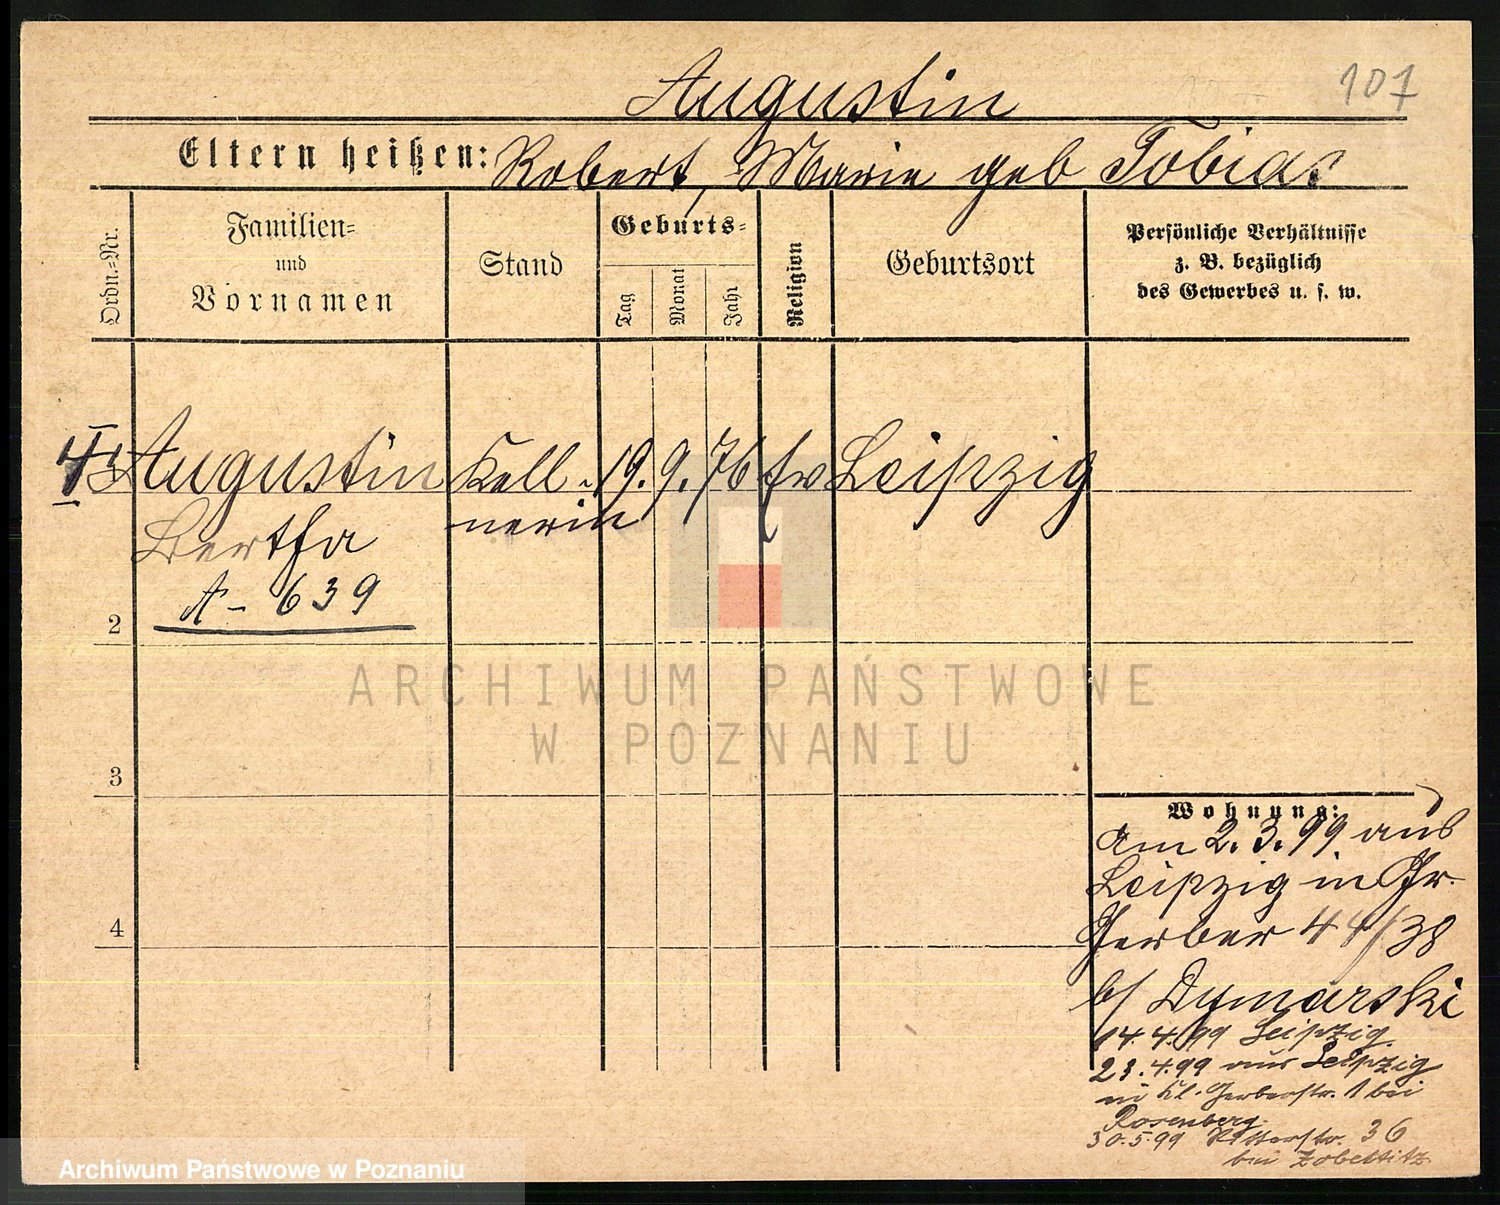 107
Augustin
Eltern heißen: Robert, Marie geb Tobias
Ordn.-Nr.
Familien-
und
Vornamen
Stand
Geburts-
Tag
Monat
Jahr
Religion
Geburtsort
Persönliche Verhältnisse
z. B. bezüglich
des Gewerbes u. s. w.
Augustin Kell- 19. 9. 76 ev Leipzig
Bertha nerin
A - 639
2
ARCHIWUM PAŃSTWOWE
W POZNANIU
3
4
Wohnung:
am 2. 3. 99 aus
Leipzig in Gr.
Gerber 44/38
b/ Dymarski
14. 4. 99 Leipzig.
23. 4. 99 aus Leipzig
in Kl. Gerberstr. 1 bei
Rosenberg
30. 5. 99 Ritterstr. 36
bei
Archiwum Państwowe w Poznaniu